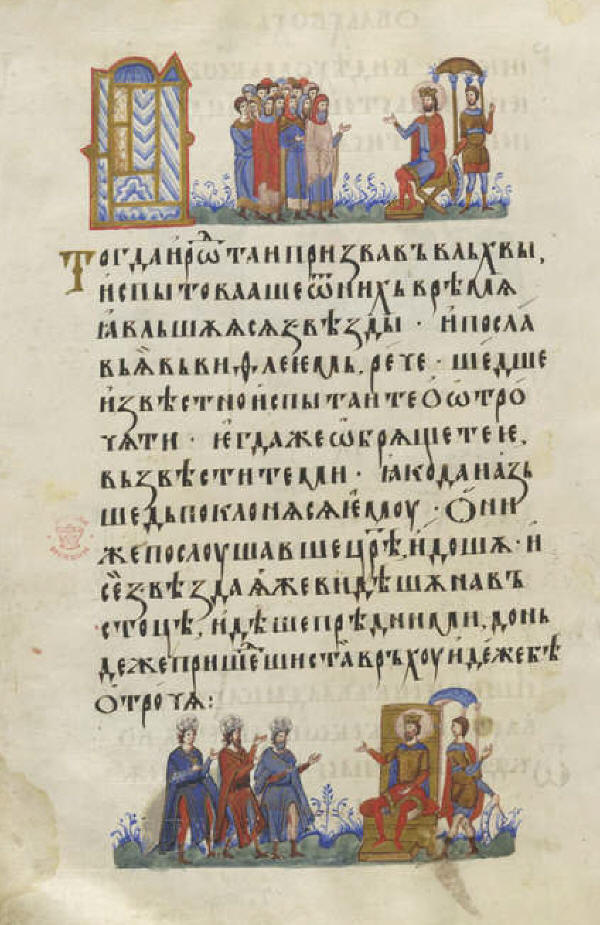 Тогда иръѿ таи призвавъ вльхвы,
испытоваше ѿ нихь врѣмѧ
ꙗвльшѫѧсѧ ѕвѣзды · и посла
вь ѧ̈ вь виѳлеіемь, рече · шедше
извѣстно испытаите о отро
чѧти · егда же обрѧщете іе,
вьзвѣстите ми · ꙗко да и азь
шедь поклонѧсѧ іемоу · Они
же послоушавше црѣ, идошѫ · и
се ѕвѣзда ѫ̈же видѣшѫ на вь
стоцѣ, идѣше прѣд ними, донь
деже пришеⷣши ста врьхоу идеже бѣ
отрочѧ :